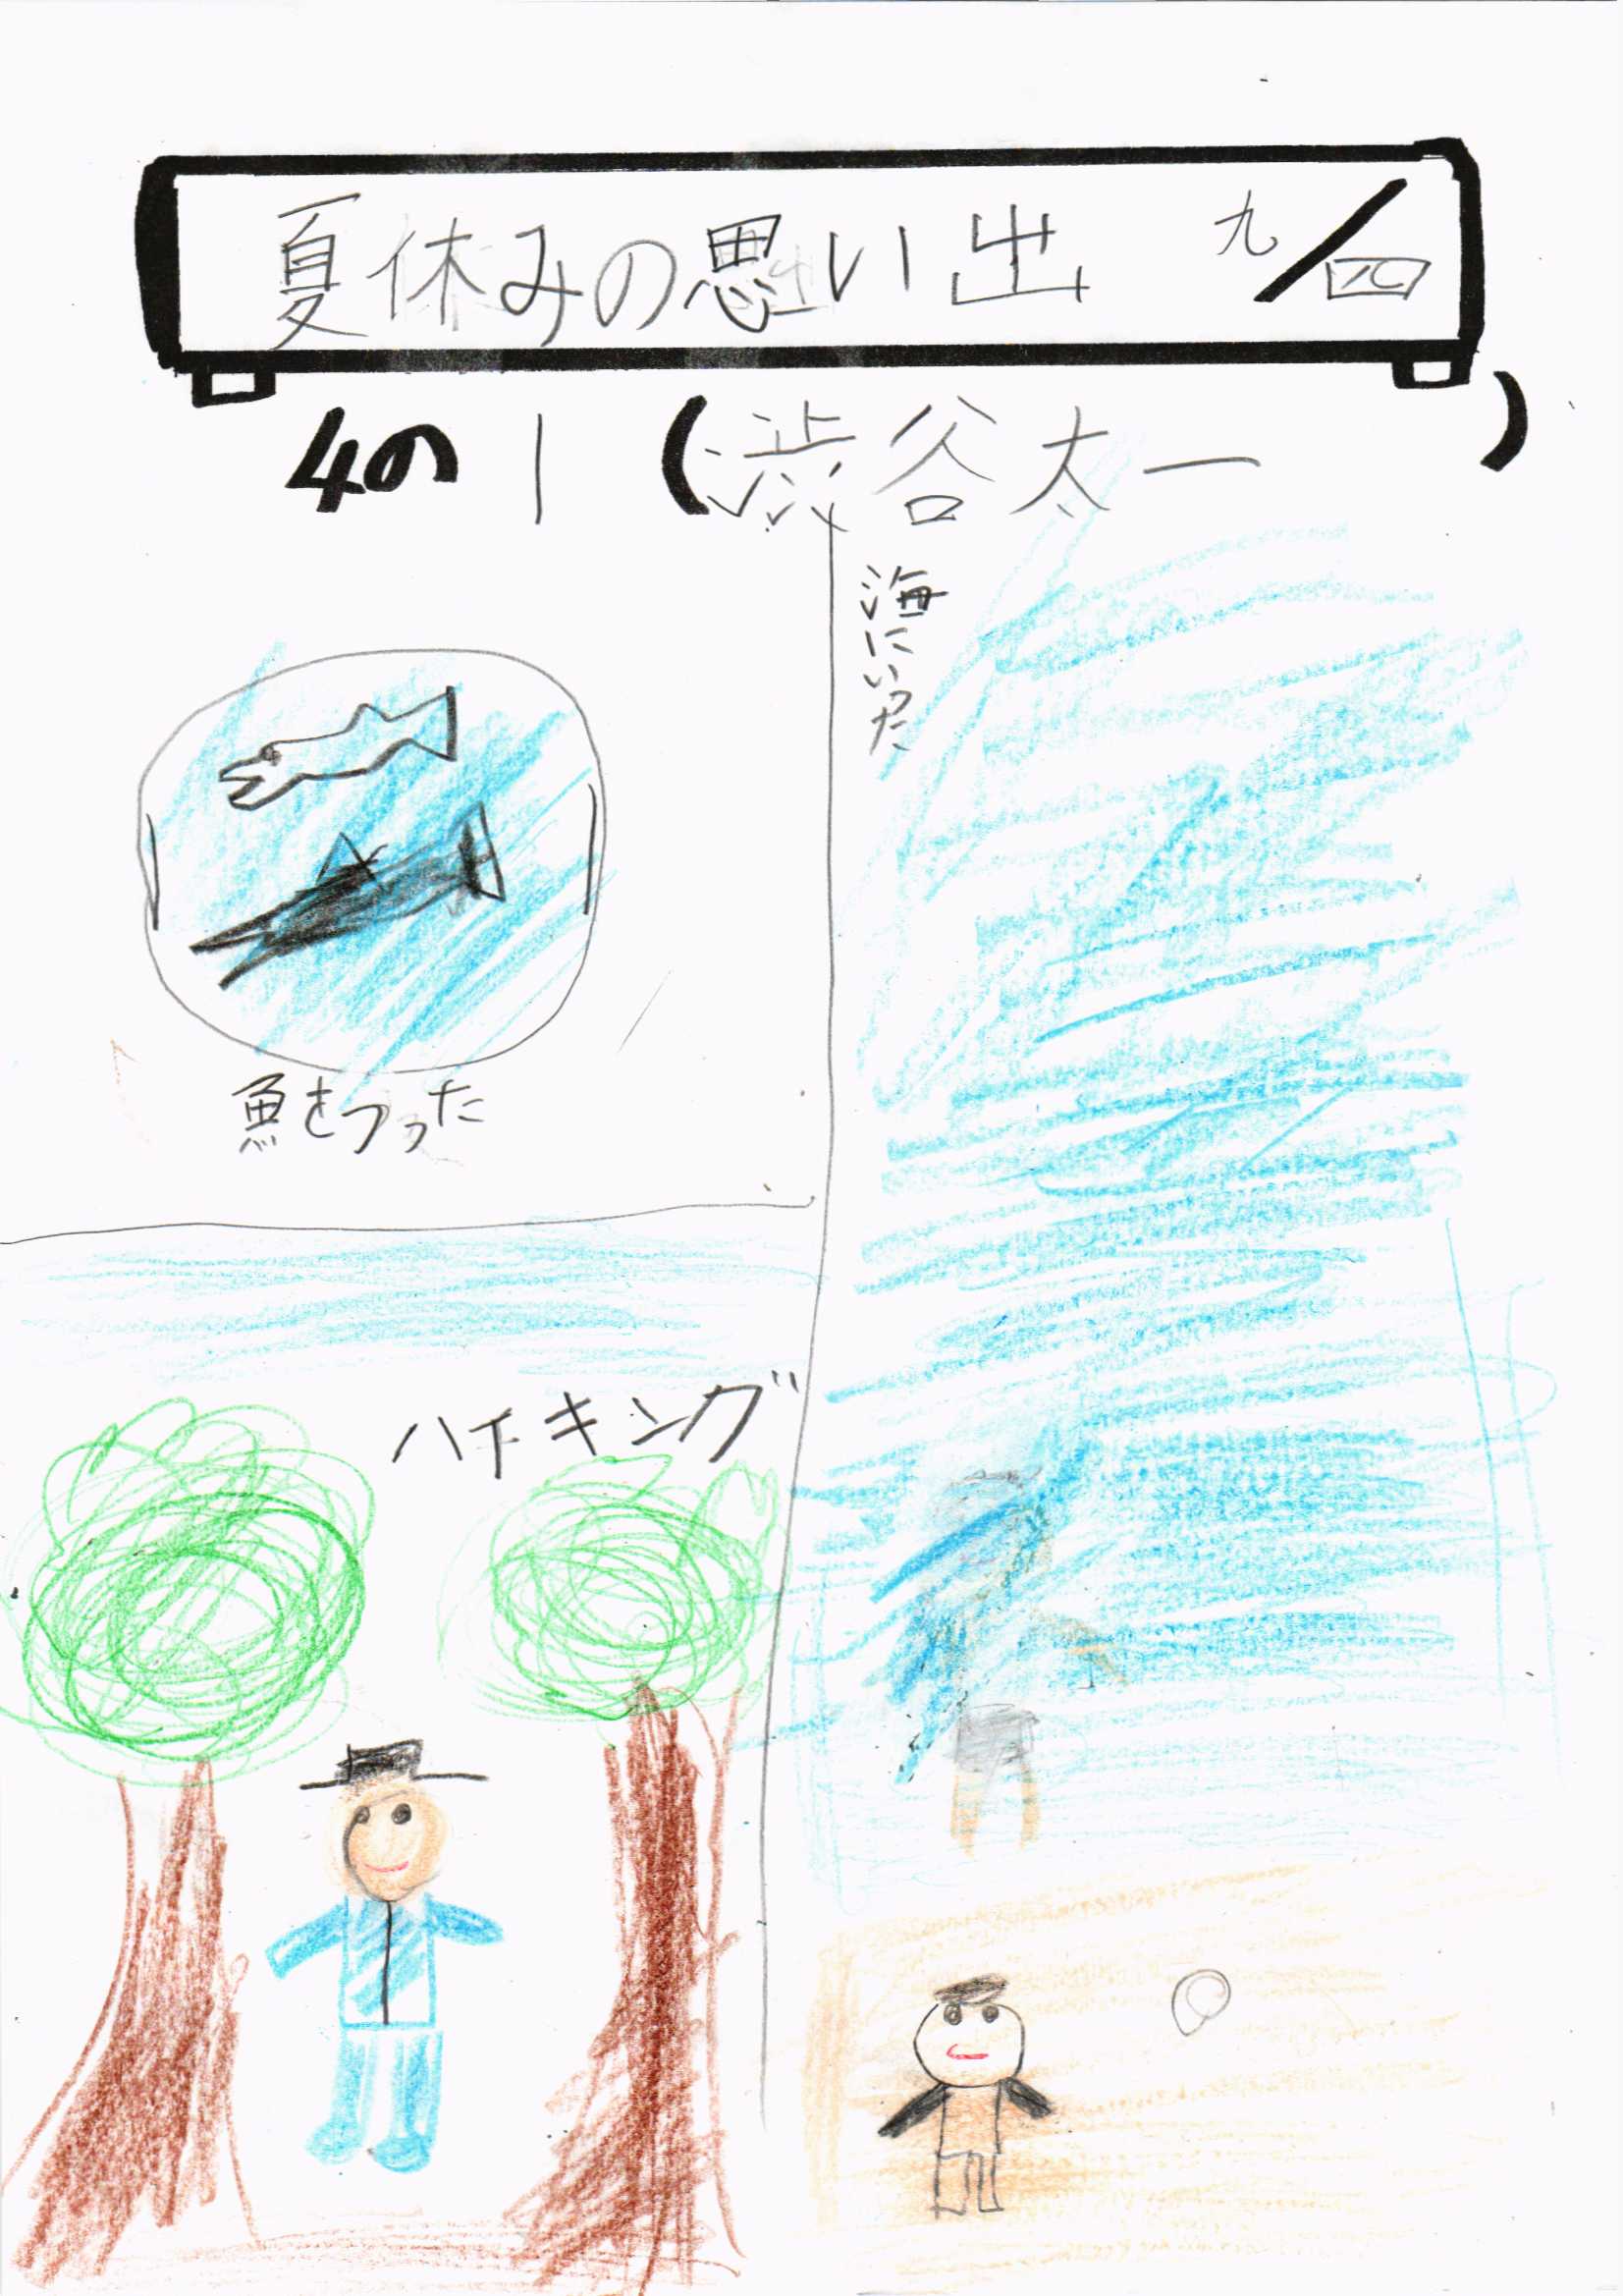 夏休みの思い出 九/四
4の1(渋谷太一)
海にいった
魚をつった
ハイキング